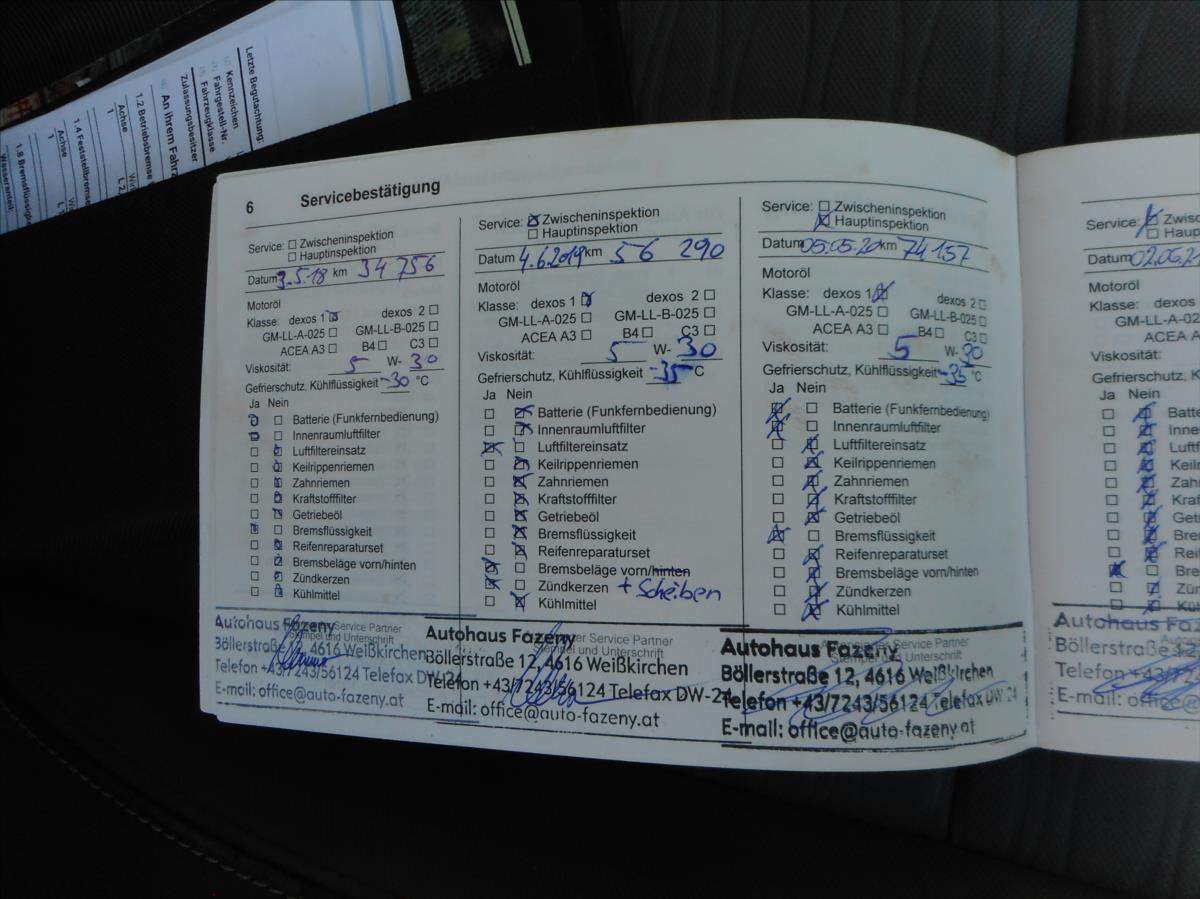 Letzte Begutachtung:
Kennzeichen
Fahrgestell-Nr.
Fahrzeugklasse
Zulassungsbesitzer
An ihrem Fahrz
1.2 Betriebsbremse
Achse
1
1.4 Feststellbremse
Achse
1
1.8 Bremsflüssigk
Wasseranteil:
6 Servicebestätigung
Service: Zwischeninspektion
Hauptinspektion
Datum 3.5.18 km 34 756
Motoröl
Klasse: dexos 1 dexos 2
GM-LL-A-025 GM-LL-B-025
ACEA A3 B4 C3
Viskosität: 5 W- 30
Gefrierschutz, Kühlflüssigkeit -30 °C
Ja Nein
Batterie (Funkfernbedienung)
Innenraumluftfilter
Luftfiltereinsatz
Keilrippenriemen
Zahnriemen
Kraftstofffilter
Getriebeöl
Bremsflüssigkeit
Reifenreparaturset
Bremsbeläge vorn/hinten
Zündkerzen
Kühlmittel
Autohaus Fazeny
Service Partner
Stempel und Unterschrift
Böllerstraße 12, 4616 Weißkirchen
Telefon +43/7243/56124 Telefax DW-24
E-mail: office@auto-fazeny.at
Service: Zwischeninspektion
Hauptinspektion
Datum 4.6.2019 km 56 290
Motoröl
Klasse: dexos 1 dexos 2
GM-LL-A-025 GM-LL-B-025
ACEA A3 B4 C3
Viskosität: 5 W- 30
Gefrierschutz, Kühlflüssigkeit -35 °C
Ja Nein
Batterie (Funkfernbedienung)
Innenraumluftfilter
Luftfiltereinsatz
Keilrippenriemen
Zahnriemen
Kraftstofffilter
Getriebeöl
Bremsflüssigkeit
Reifenreparaturset
Bremsbeläge vorn/hinten
Zündkerzen + Scheiben
Kühlmittel
Autohaus Fazeny
Service Partner
Stempel und Unterschrift
Böllerstraße 12, 4616 Weißkirchen
Telefon +43/7243/56124 Telefax DW-24
E-mail: office@auto-fazeny.at
Service: Zwischeninspektion
Hauptinspektion
Datum 05.05.20 km 74157
Motoröl
Klasse: dexos 1 dexos 2
GM-LL-A-025 GM-LL-B-025
ACEA A3 B4 C3
Viskosität: 5 W- 30
Gefrierschutz, Kühlflüssigkeit -35 °C
Ja Nein
Batterie (Funkfernbedienung)
Innenraumluftfilter
Luftfiltereinsatz
Keilrippenriemen
Zahnriemen
Kraftstofffilter
Getriebeöl
Bremsflüssigkeit
Reifenreparaturset
Bremsbeläge vorn/hinten
Zündkerzen
Kühlmittel
Autohaus Fazeny
Service Partner
Stempel und Unterschrift
Böllerstraße 12, 4616 Weißkirchen
Telefon +43/7243/56124 Telefax DW-24
E-mail: office@auto-fazeny.at
Service: Zwisc
Haupt
Datum 02.06.21
Motoröl
Klasse: dexos
GM-LL-A-02
ACEA A
Viskosität:
Gefrierschutz, Kühlf
Ja Nein
Batte
Inne
Luftf
Keil
Zah
Kra
Get
Bre
Rei
Bre
Zü
Kü
Autohaus Faz
Böllerstraße 12
Telefon +43/72
E-mail: office